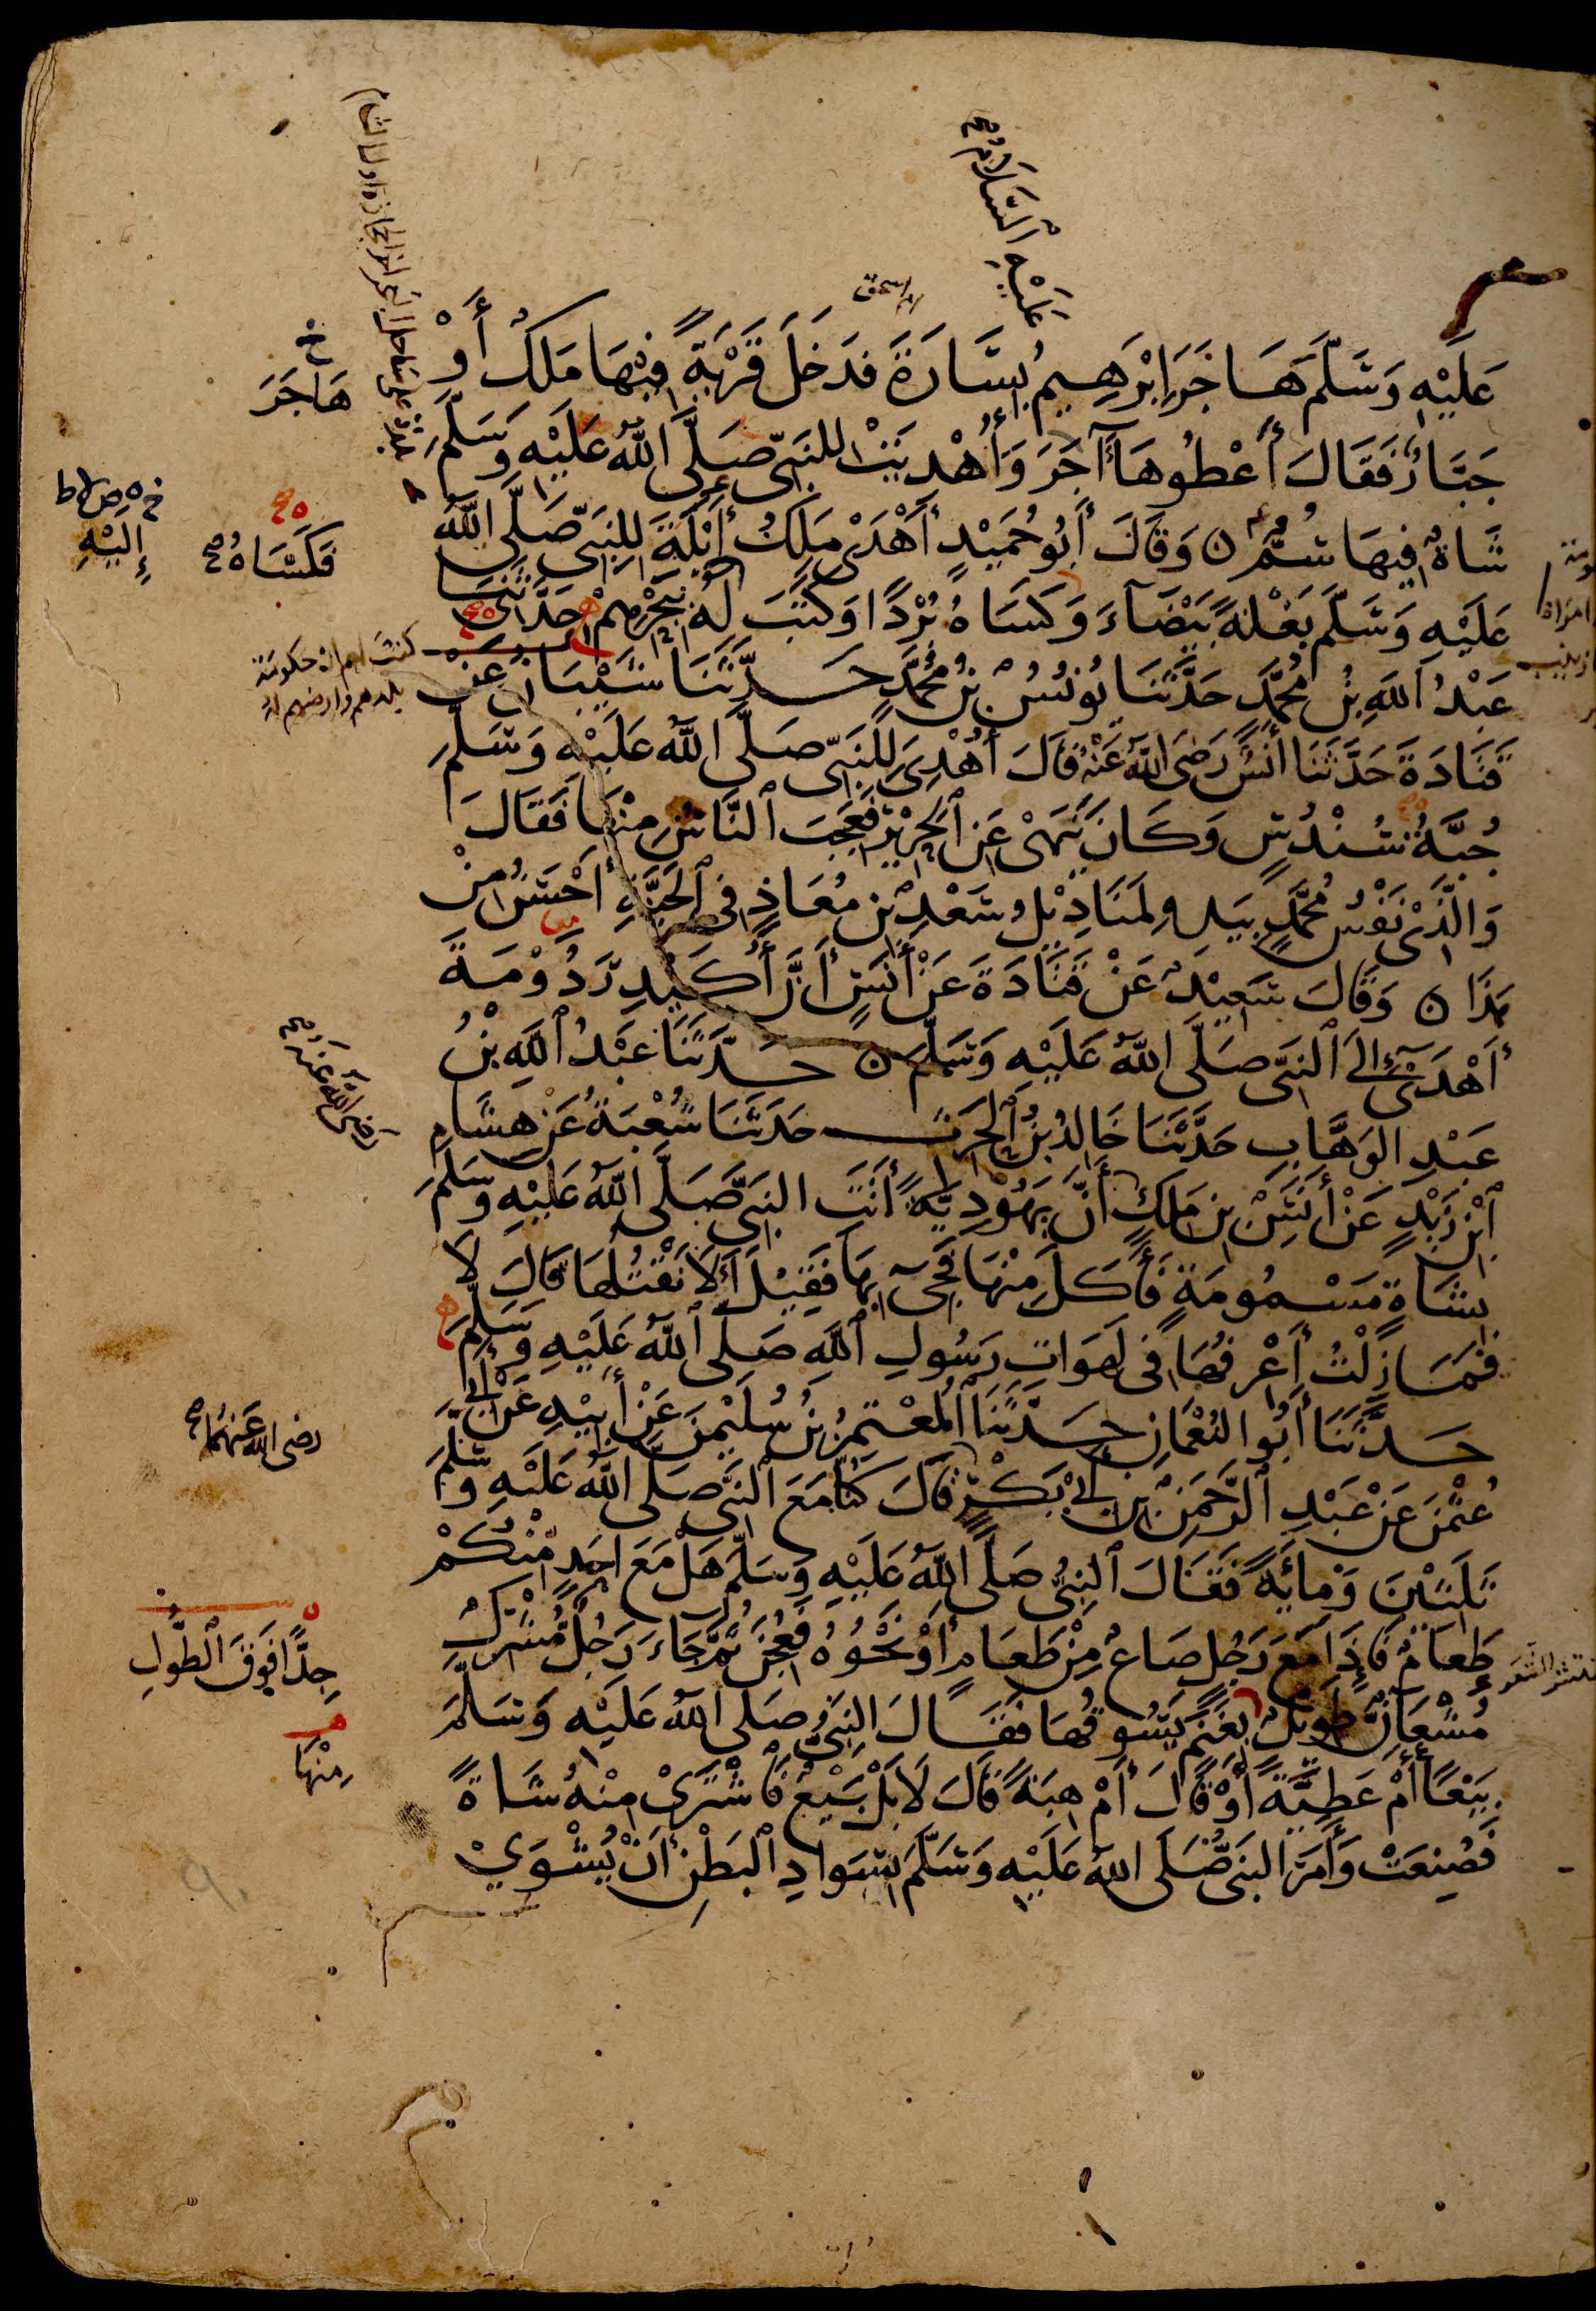 عَلَيْهِ السَّلَامُ صح
عَلَيْهِ وَسَلَّمَ هَاجَرَ إِبْرَهِيمُ بِسَارَةَ فَدَخَلَ قَرْيَةً فِيْهَا مَلِكٌ أَوْ
جَبَّارٌ فَقَالَ أَعْطُوهَا آجَرَ وَأُهْدِيَتْ لِلنَّبِيِّ صَلَّى اللَّهُ عَلَيْهِ وَسَلَّمَ
شَاةٌ فِيهَا سُمٌّ ه وَقَالَ أَبُو حُمَيْدٍ أَهْدَى مَلِكُ أَيْلَةَ لِلنَّبِيِّ صَلَّى اللَّهُ
عَلَيْهِ وَسَلَّمَ بَغْلَةً بَيْضَآءَ وَكَسَاهُ بُرْدًا وَكَتَبَ لَهُ بِبَحْرِهِمْ حَدَّثَنَا
عَبْدُ اللَّهِ بْنُ مُحَمَّدٍ حَدَّثَنَا يُونُسُ بْنُ مُحَمَّدٍ حَدَّثَنَا شَيْبَانُ عَنْ
قَتَادَةَ حَدَّثَنَا أَنَسٌ رَضِيَ اللَّهُ عَنْهُ قَالَ أُهْدِيَ لِلنَّبِيِّ صَلَّى اللَّهُ عَلَيْهِ وَسَلَّمَ
جُبَّةُ سُنْدُسٍ وَكَانَ يَنْهَى عَنِ الْحَرِيْرِ فَعَجِبَ النَّاسُ مِنْهَا فَقَالَ
وَالَّذِيْ نَفْسُ مُحَمَّدٍ بِيَدِهِ لَمَنَادِيْلُ سَعْدِ بْنِ مُعَاذٍ فِي الْجَنَّةِ أَحْسَنُ مِنْ
هَذَا ه وَقَالَ سَعِيْدٌ عَنْ قَتَادَةَ عَنْ أَنَسٍ أَنَّ أُكَيْدِرَ دُوْمَةَ
أَهْدَى إِلَى النَّبِيِّ صَلَّى اللَّهُ عَلَيْهِ وَسَلَّمَ ه حَدَّثَنَا عَبْدُ اللَّهِ بْنُ
عَبْدِ الوَهَّابِ حَدَّثَنَا خَالِدُ بْنُ الْحَرِثِ حَدَّثَنَا شُعْبَةُ عَنْ هِشَامِ
ابْنِ زَيْدٍ عَنْ أَنَسِ بْنِ مَلِكٍ أَنَّ يَهُوْدِيَّةً أَتَتِ النَّبِيَّ صَلَّى اللَّهُ عَلَيْهِ وَسَلَّمَ
بِشَاةٍ مَسْمُومَةٍ فَأَكَلَ مِنْهَا فَجِيءَ بِهَا فَقِيْلَ أَلَا نَقْتُلُهَا قَالَ لَا
فَمَا زِلْتُ أَعْرِفُهَا فِي لَهَوَاتِ رَسُولِ اللَّهِ صَلَّى اللَّهُ عَلَيْهِ وَسَلَّمَ
حَدَّثَنَا أَبُو النُّعْمَانِ حَدَّثَنَا الْمُعْتَمِرُ بْنُ سُلَيْمٰنَ عَنْ أَبِيْهِ عَنْ أَبِي
عُثْمٰنَ عَنْ عَبْدِ الرَّحْمٰنِ بْنِ أَبِي بَكْرٍ قَالَ كُنَّا مَعَ النَّبِيِّ صَلَّى اللَّهُ عَلَيْهِ وَسَلَّمَ
ثَلَثِيْنَ وَمِائَةً فَقَالَ النَّبِيُّ صَلَّى اللَّهُ عَلَيْهِ وَسَلَّمَ هَلْ مَعَ أَحَدٍ مِنْكُمْ
طَعَامٌ فَإِذَا مَعَ رَجُلٍ صَاعٌ مِنْ طَعَامٍ أَوْ نَحْوُهُ فَعُجِنَ ثُمَّ جَاءَ رَجُلٌ مُشْرِكٌ
مُشْعَانٌّ طَوِيْلٌ بِغَنَمٍ يَسُوقُهَا فَقَالَ النَّبِيُّ صَلَّى اللَّهُ عَلَيْهِ وَسَلَّمَ
بَيْعًا أَمْ عَطِيَّةً أَوْ قَالَ أَمْ هِبَةً قَالَ لَا بَلْ بَيْعٌ فَاشْتَرَى مِنْهُ شَاةً
فَصُنِعَتْ وَأَمَرَ النَّبِيُّ صَلَّى اللَّهُ عَلَيْهِ وَسَلَّمَ بِسَوَادِ الْبَطْنِ أَنْ يُشْوَى
هَاجَرَ
إِلَيْهِ
فَكَسَاهُ صح
رَضِيَ اللَّهُ عَنْهُ صح
رضى الله عَنْهُمَا صح
جِدًّا فَوْقَ الطُّولِ
مِنْهَا
٩٠